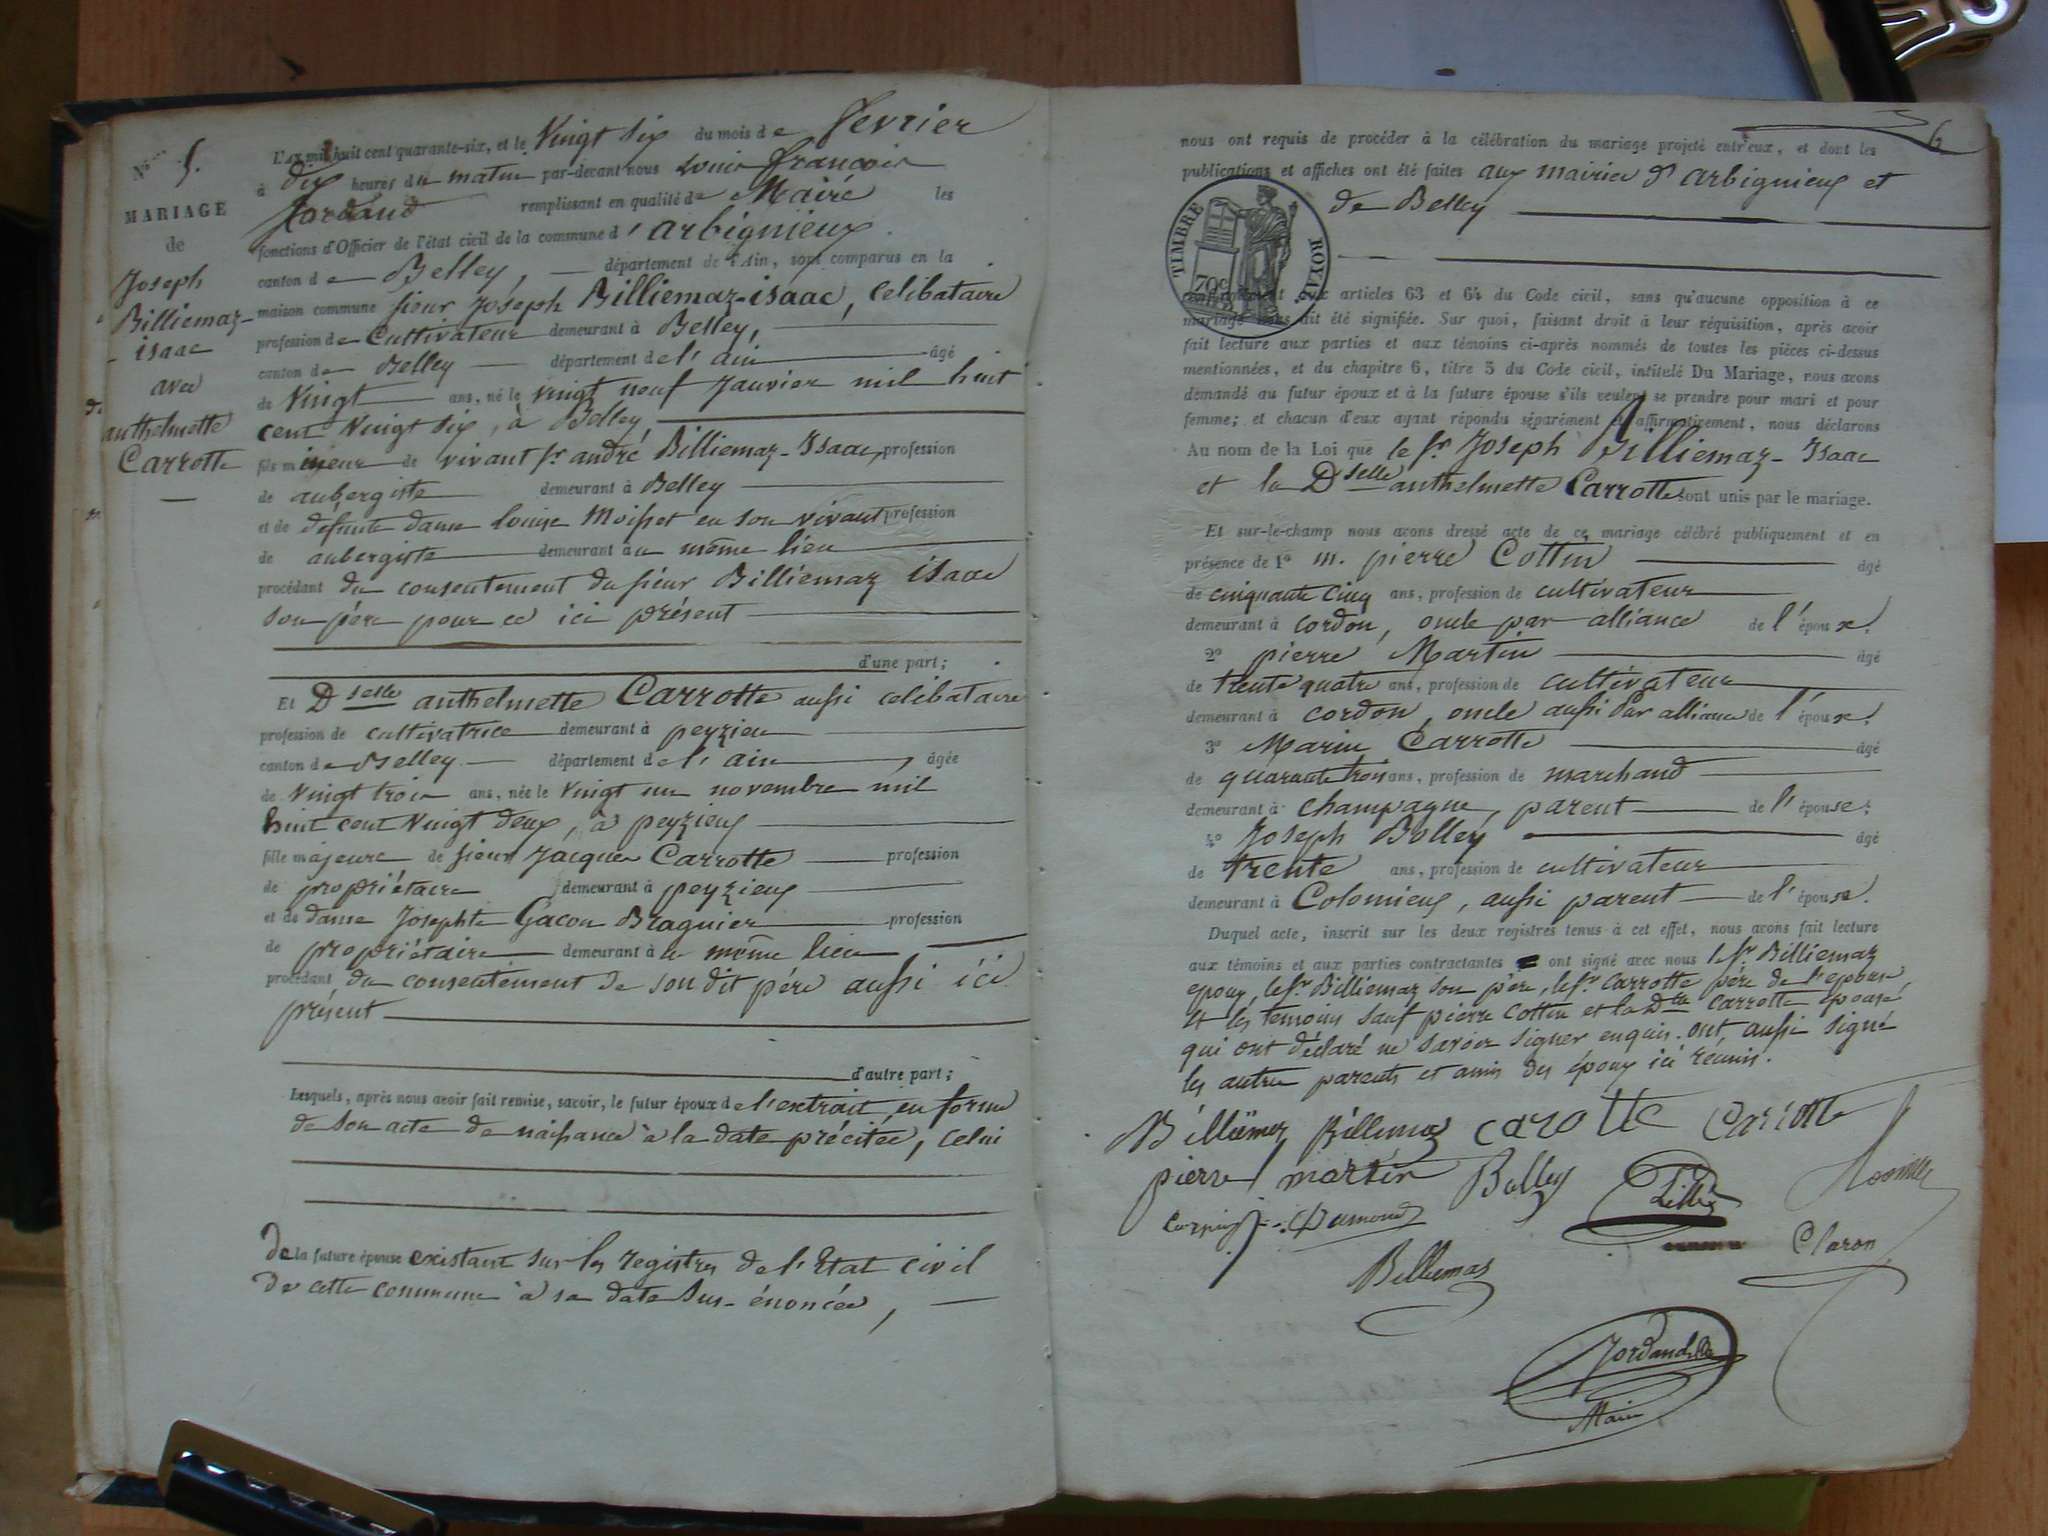 N° 5.
MARIAGE
de
Joseph
Billiemaz-
isaac
avec
anthelmette
Carrotte
L'an mil huit cent quarante-six, et le Vingt six du mois de fevrier
à dix heures du matin par-devant nous Louis françois
Jordand remplissant en qualité de Maire les
fonctions d'Officier de l'état civil de la commune d'arbignieux.
canton de Belley, département de l'Ain, sont comparus en la
maison commune sieur Joseph Billiemaz-isaac, Celibataire
profession de Cultivateur demeurant à Belley,
canton de Belley département de l'ain âgé
de Vingt ans, né le vingt neuf Janvier mil huit
cent Vingt six, à Belley,
fils mineur de vivant sr andré Billiemaz-Isaac, profession
de aubergiste demeurant à Belley
et de defunte dame louise Moisset en son vivant profession
de aubergiste demeurant au même lieu
procédant du consentement du sieur Billiemaz isaac
son père pour ce ici présent
d'une part;
Et Dselle anthelmette Carrotte aussi celibataire
profession de cultivatrice demeurant à peyzieu
canton de Belley département de l'ain, âgée
de Vingt trois ans, née le Vingt un novembre mil
huit cent Vingt deux, à peyzieux
fille majeure de sieur Jacques Carrotte profession
de propriétaire demeurant à peyzieux
et de dame Josephte Gacon Braquier profession
de propriétaire demeurant à u même lieu
procédant du consentement de son dit père aussi ici
présent
d'autre part;
Lesquels, après nous avoir fait remise, savoir, le futur époux de l'extrait en forme
de son acte de naissance à la date précitée, celui
De la future épouse existant sur les registres de l'Etat civil
de cette commune à sa date sus-énoncée,
6
nous ont requis de procéder à la célébration du mariage projeté entr'eux, et dont les
publications et affiches ont été faites aux mairies d'arbignieux et
de Belley
TIMBRE ROYAL
70c
conformément aux articles 63 et 64 du Code civil, sans qu'aucune opposition à ce
mariage nous ait été signifiée. Sur quoi, faisant droit à leur réquisition, après avoir
fait lecture aux parties et aux témoins ci-après nommés de toutes les pièces ci-dessus
mentionnées, et du chapitre 6, titre 5 du Code civil, intitelé Du Mariage, nous avons
demandé au futur époux et à la future épouse s'ils veulent se prendre pour mari et pour
femme; et chacun d'eux ayant répondu séparément et affirmativement, nous déclarons
Au nom de la Loi que le sr Joseph Billiemaz-Isaac
et la Dselle anthelmette Carrotte sont unis par le mariage.
Et sur-le-champ nous avons dressé acte de ce mariage célébré publiquement et en
présence de 1° m. pierre Cottin âgé
de cinquante cinq ans, profession de cultivateur
demeurant à cordon, oncle par alliance de l'épouse.
2° pierre Martin âgé
de trente quatre ans, profession de cultivateur
demeurant à cordon, oncle aussi par alliance de l'épouse.
3° Marin Carrotte âgé
de quarante trois ans, profession de marchand
demeurant à champagne, parent de l'épouse.
4° Joseph Bolley âgé
de trente ans, profession de cultivateur
demeurant à Colomieux, aussi parent de l'épouse.
Duquel acte, inscrit sur les deux registres tenus à cet effet, nous avons fait lecture
aux témoins et aux parties contractantes ont signé avec nous le sr Billiemaz
epoux, le sr Billiemaz son père, le sr Carrotte père de l'epouse
et les temoins sauf pierre Cottin et la Dlle Carrotte épouse
qui ont déclaré ne savoir signer enquis. ont aussi signé
les autres parents et amis des époux ici réunis.
Billiemaz Billiemaz carotte Carrotte
pierre martin Bolley
Dumond
Claron
Billiemas
Jordand
Maire